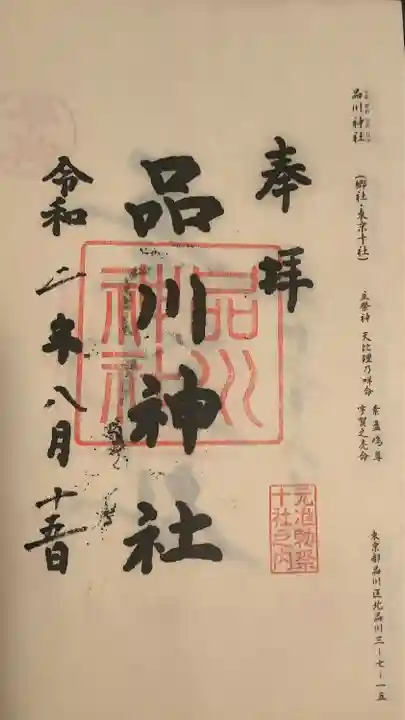 品川神社
(郷社・東京十社)
主祭神 天比理乃咩命
素盞嗚尊
宇賀之売命
東京都品川区北品川三ー七ー一五
奉拝
元准勅祭
十社之内
品川神社
品川
神社
令和二年八月十五日